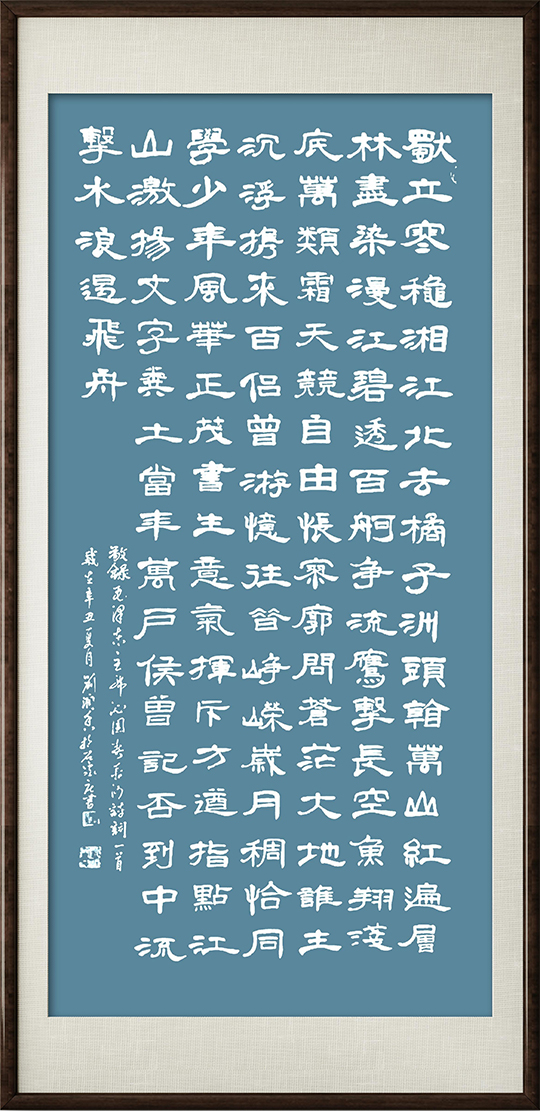 獨立寒穐湘江北去橘子洲頭看萬山紅遍層
林盡染漫江碧透百舸争流鷹擊長空魚翔淺
底萬類霜天競自由悵寥廓問蒼茫大地誰主
沉浮携來百侶曾游憶往昔崢嶸歲月稠恰同
學少年風華正茂書生意氣揮斥方遒指點江
山激揚文字糞土當年萬戶侯曾記否到中流
擊水浪遏飛舟
敬錄毛澤東主席沁園春長沙詩詞一首
歲在辛丑夏月劉於石家庄書